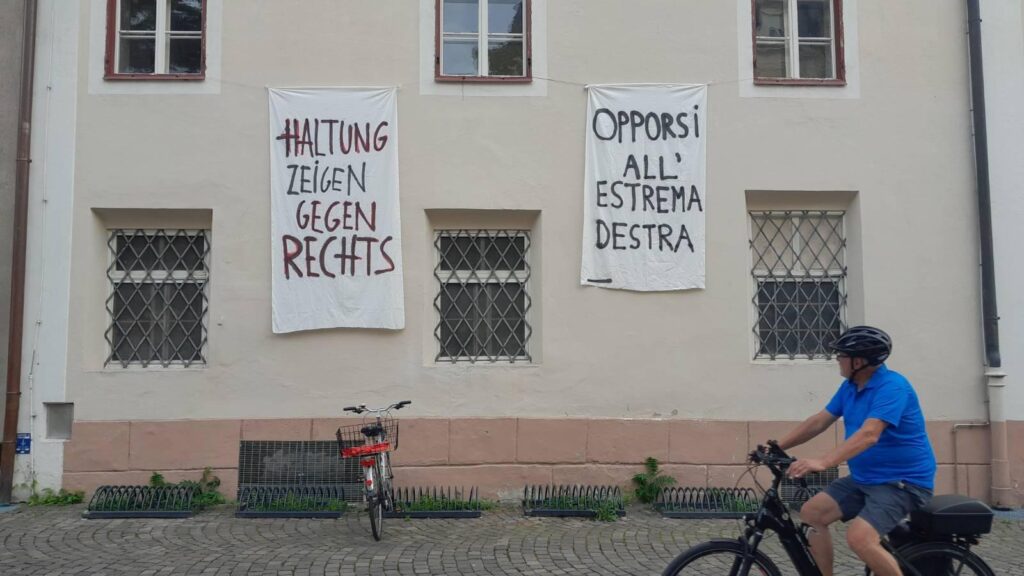 HALTUNG
ZEIGEN
GEGEN
RECHTS
OPPORSI
ALL'
ESTREMA
DESTRA